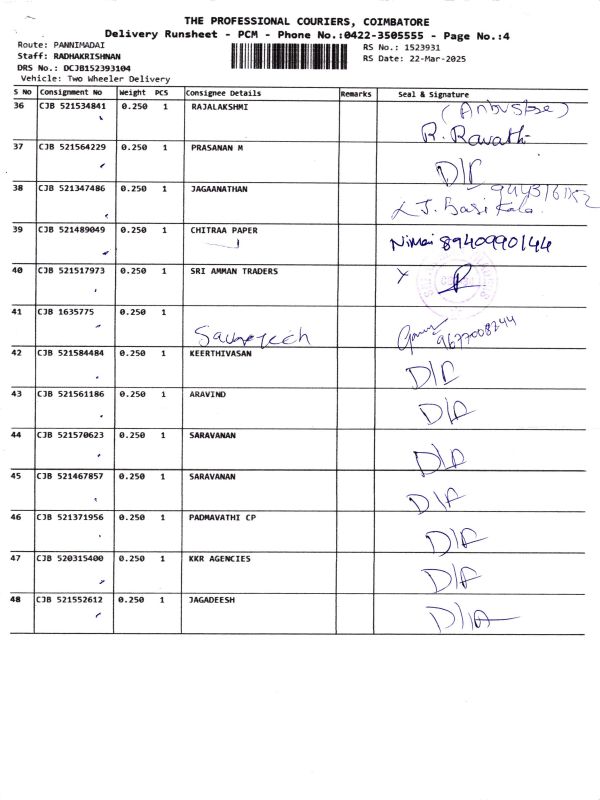 THE PROFESSIONAL COURIERS, COIMBATORE
Delivery Runsheet - PCM - Phone No.:0422-3505555 - Page No.:4
Route: PANNIMADAI
RS No.: 1523931
Staff: RADHAKRISHNAN
RS Date: 22-Mar-2025
DRS No.: DCJB152393104
Vehicle: Two Wheeler Delivery
S No Consignment No Weight PCS Consignee Details Remarks Seal & Signature
36 CJB 521534841 0.250 1 RAJALAKSHMI
R. Ravathi
37 CJB 521564229 0.250 1 PRASANAN M
38 CJB 521347486 0.250 1 JAGAANATHAN
39 CJB 521489049 0.250 1 CHITRAA PAPER 8940990144
40 CJB 521517973 0.250 1 SRI AMMAN TRADERS
41 CJB 1635775 0.250 1
9677008244
42 CJB 521584484 0.250 1 KEERTHIVASAN
43 CJB 521561186 0.250 1 ARAVIND
44 CJB 521570623 0.250 1 SARAVANAN
45 CJB 521467857 0.250 1 SARAVANAN
46 CJB 521371956 0.250 1 PADMAVATHI CP
47 CJB 520315400 0.250 1 KKR AGENCIES
48 CJB 521552612 0.250 1 JAGADEESH